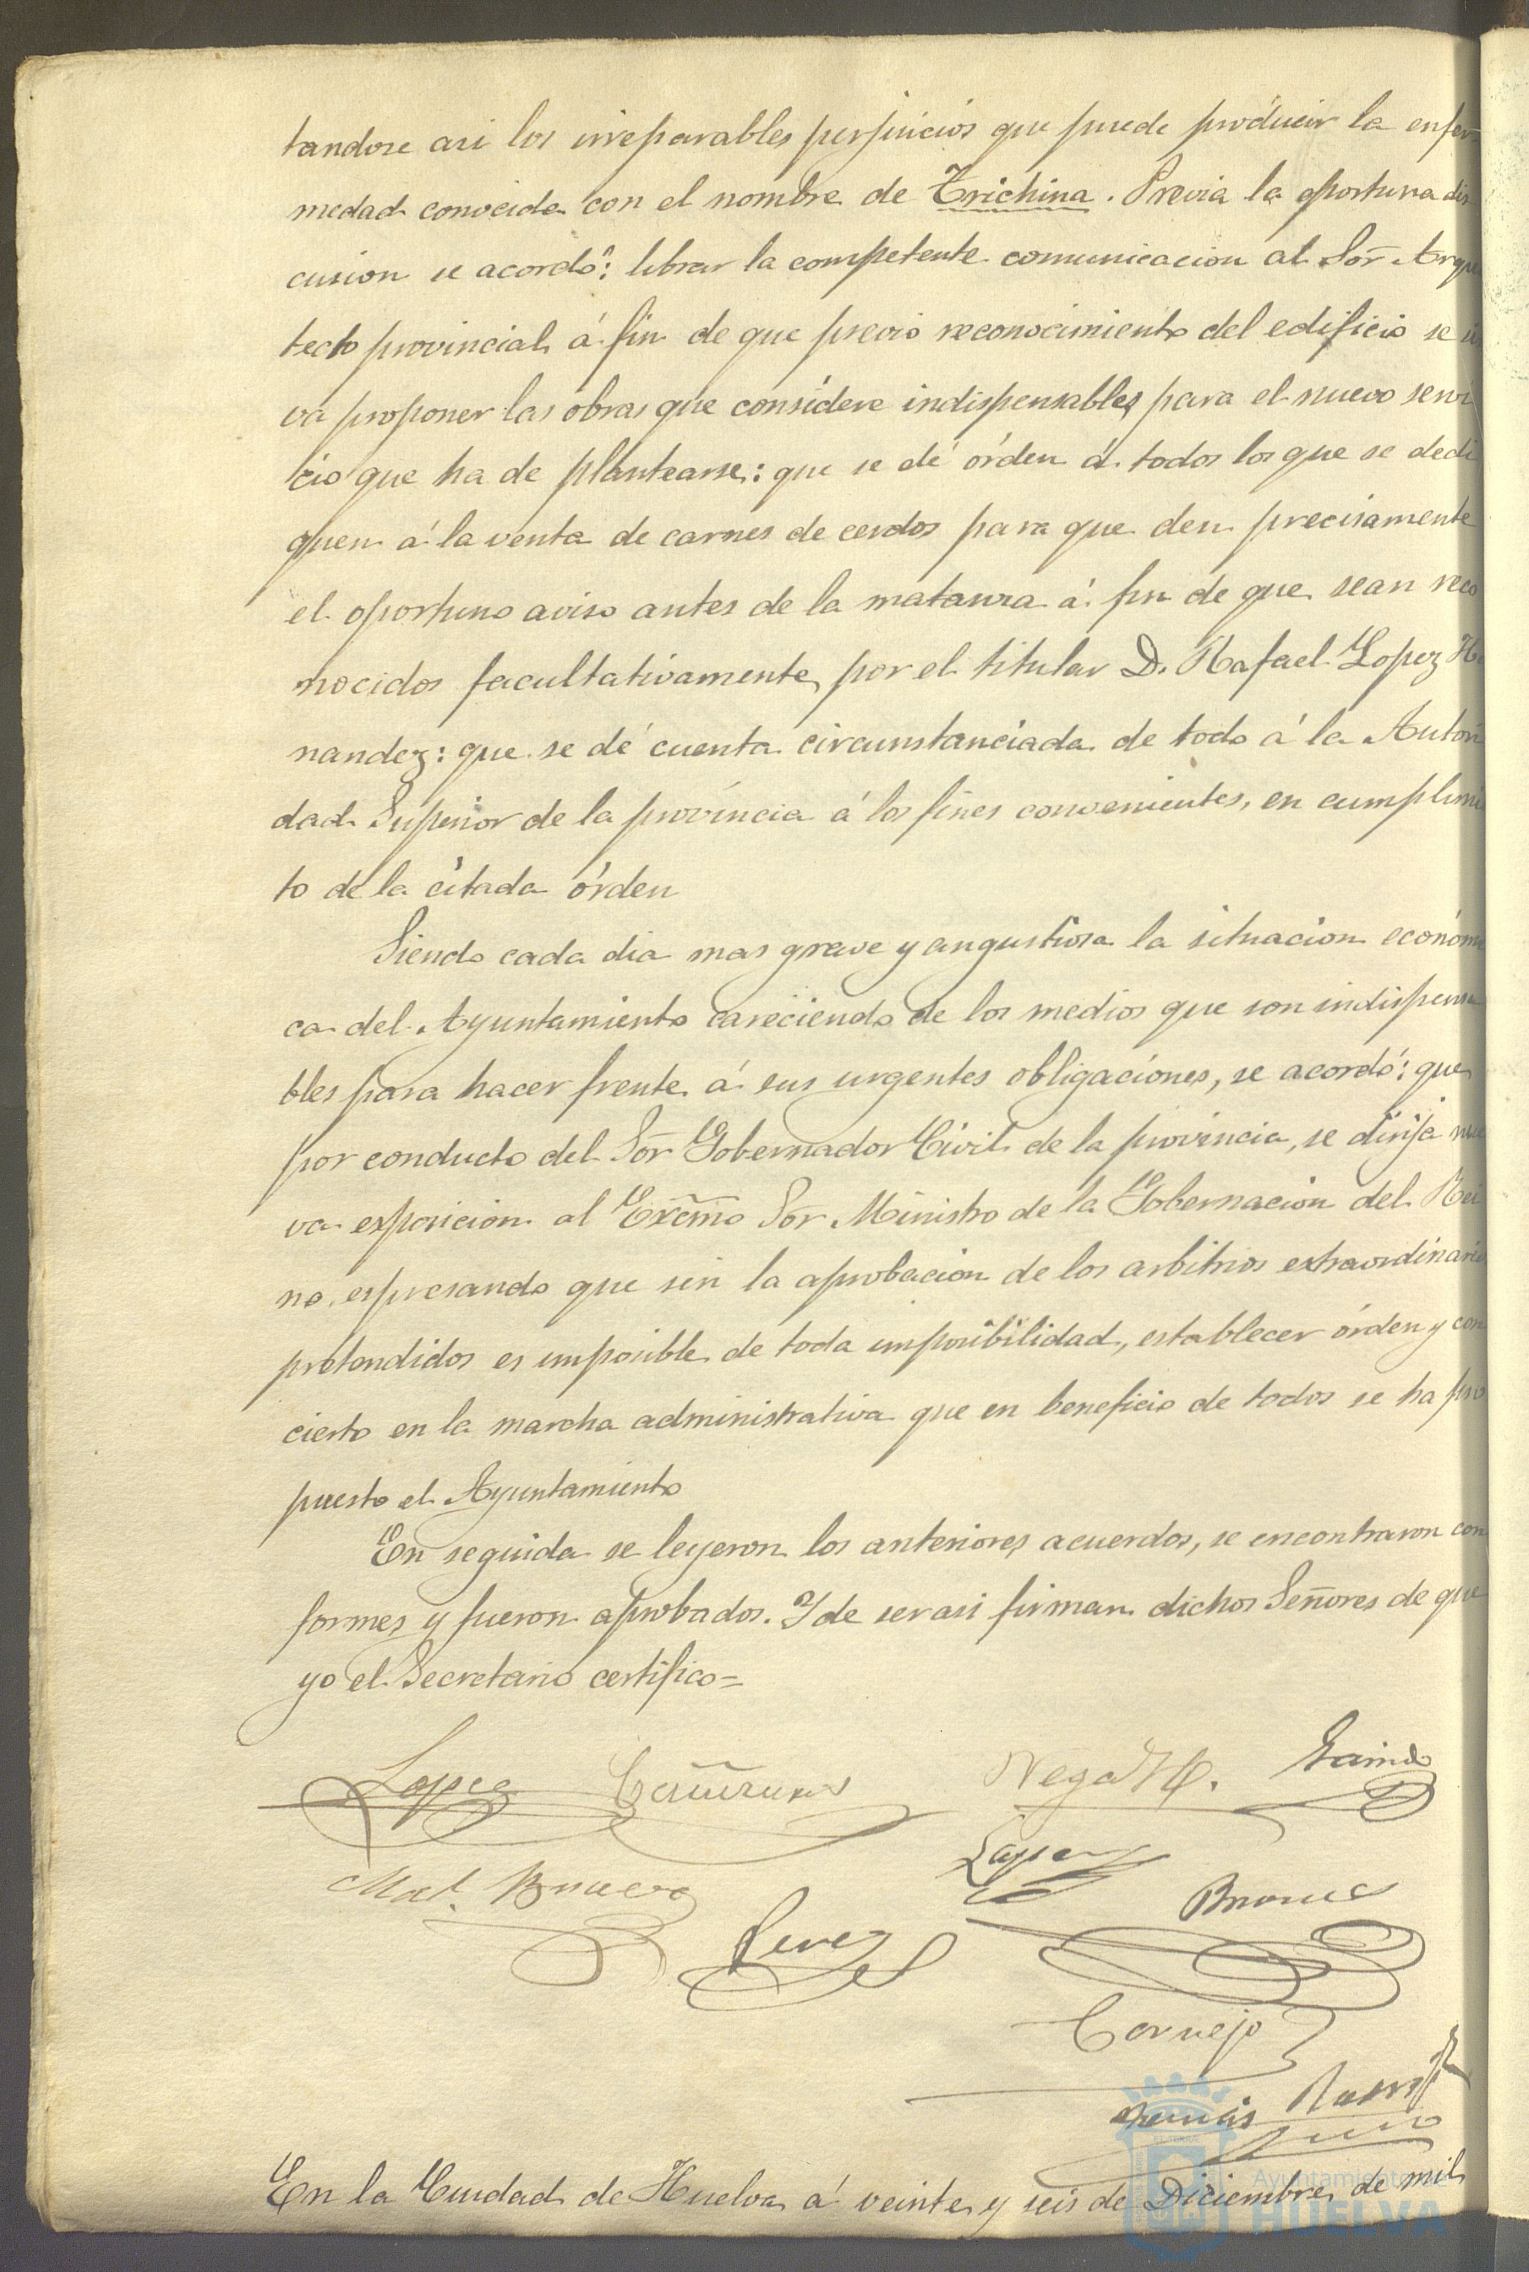 tandose asi los irreparables perjuicios que puede producir la enfer
medad conocida con el nombre de Trichina. Previa la oportuna dis
cusion se acordó: librar la competente comunicacion al Sōr Arqui
tecto provincial á fin de que previo reconocimiento del edificio se sir
va proponer las obras que considere indispensables para el nuevo servi
cio que ha de plantearse: que se dé órden á todos los que se dedi
quen á la venta de carnes de cerdos para que den precisamente
el oportuno aviso antes de la matanza á fin de que sean reco
nocidos facultativamente por el titular D. Rafael Lopez He
nandez: que se dé cuenta circunstanciada de todo á la Autori
dad Superior de la provincia á los fines convenientes, en cumplimi
to de la citada órden
Siendo cada dia mas grave y angustiosa la situacion económi
ca del Ayuntamiento careciendo de los medios que son indispensa
bles para hacer frente á sus urgentes obligaciones, se acordó: que
por conducto del Sōr Gobernador Civil de la provincia, se dirija nue
va exposicion al Excm̃o Sōr Ministro de la Gobernacion del Rei
no, espresando que sin la aprobacion de los arbitrios extraordinario
pretendidos es imposible de toda imposibilidad, establecer órden y con
cierto en la marcha administrativa que en beneficio de todos se ha pro
puesto el Ayuntamiento
En seguida se leyeron los anteriores acuerdos, se encontraron con
formes y fueron aprobados. Y de ser asi firman dichos Señores de que
yo el Secretario certifico=
Lopez
Vega
Lopez
Perez
Cornejo
En la Ciudad de Huelva á veinte y seis de Diciembre de mil
Ayuntamiento de
HUELVA